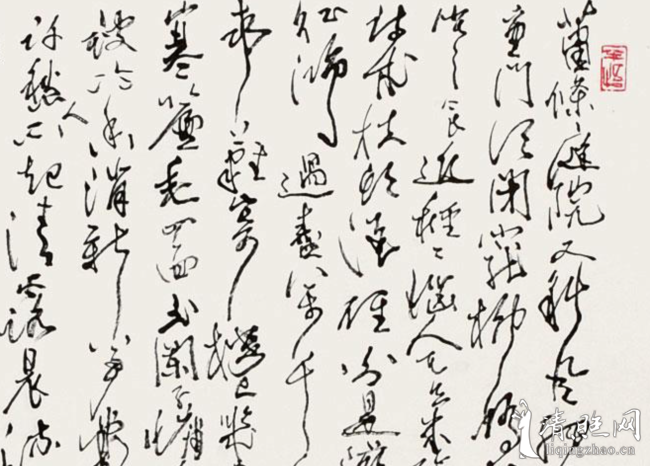 蕭條庭院又斜風細
重門須閉寵柳嬌
寒食近種種惱人天氣
詩成扶頭酒醒別是閑
征鴻過盡萬千
事難寄樓上幾
寒簾垂四面玉闌干慵
被冷香消新夢覺
許愁人不起清露晨流
liqingzhao.com